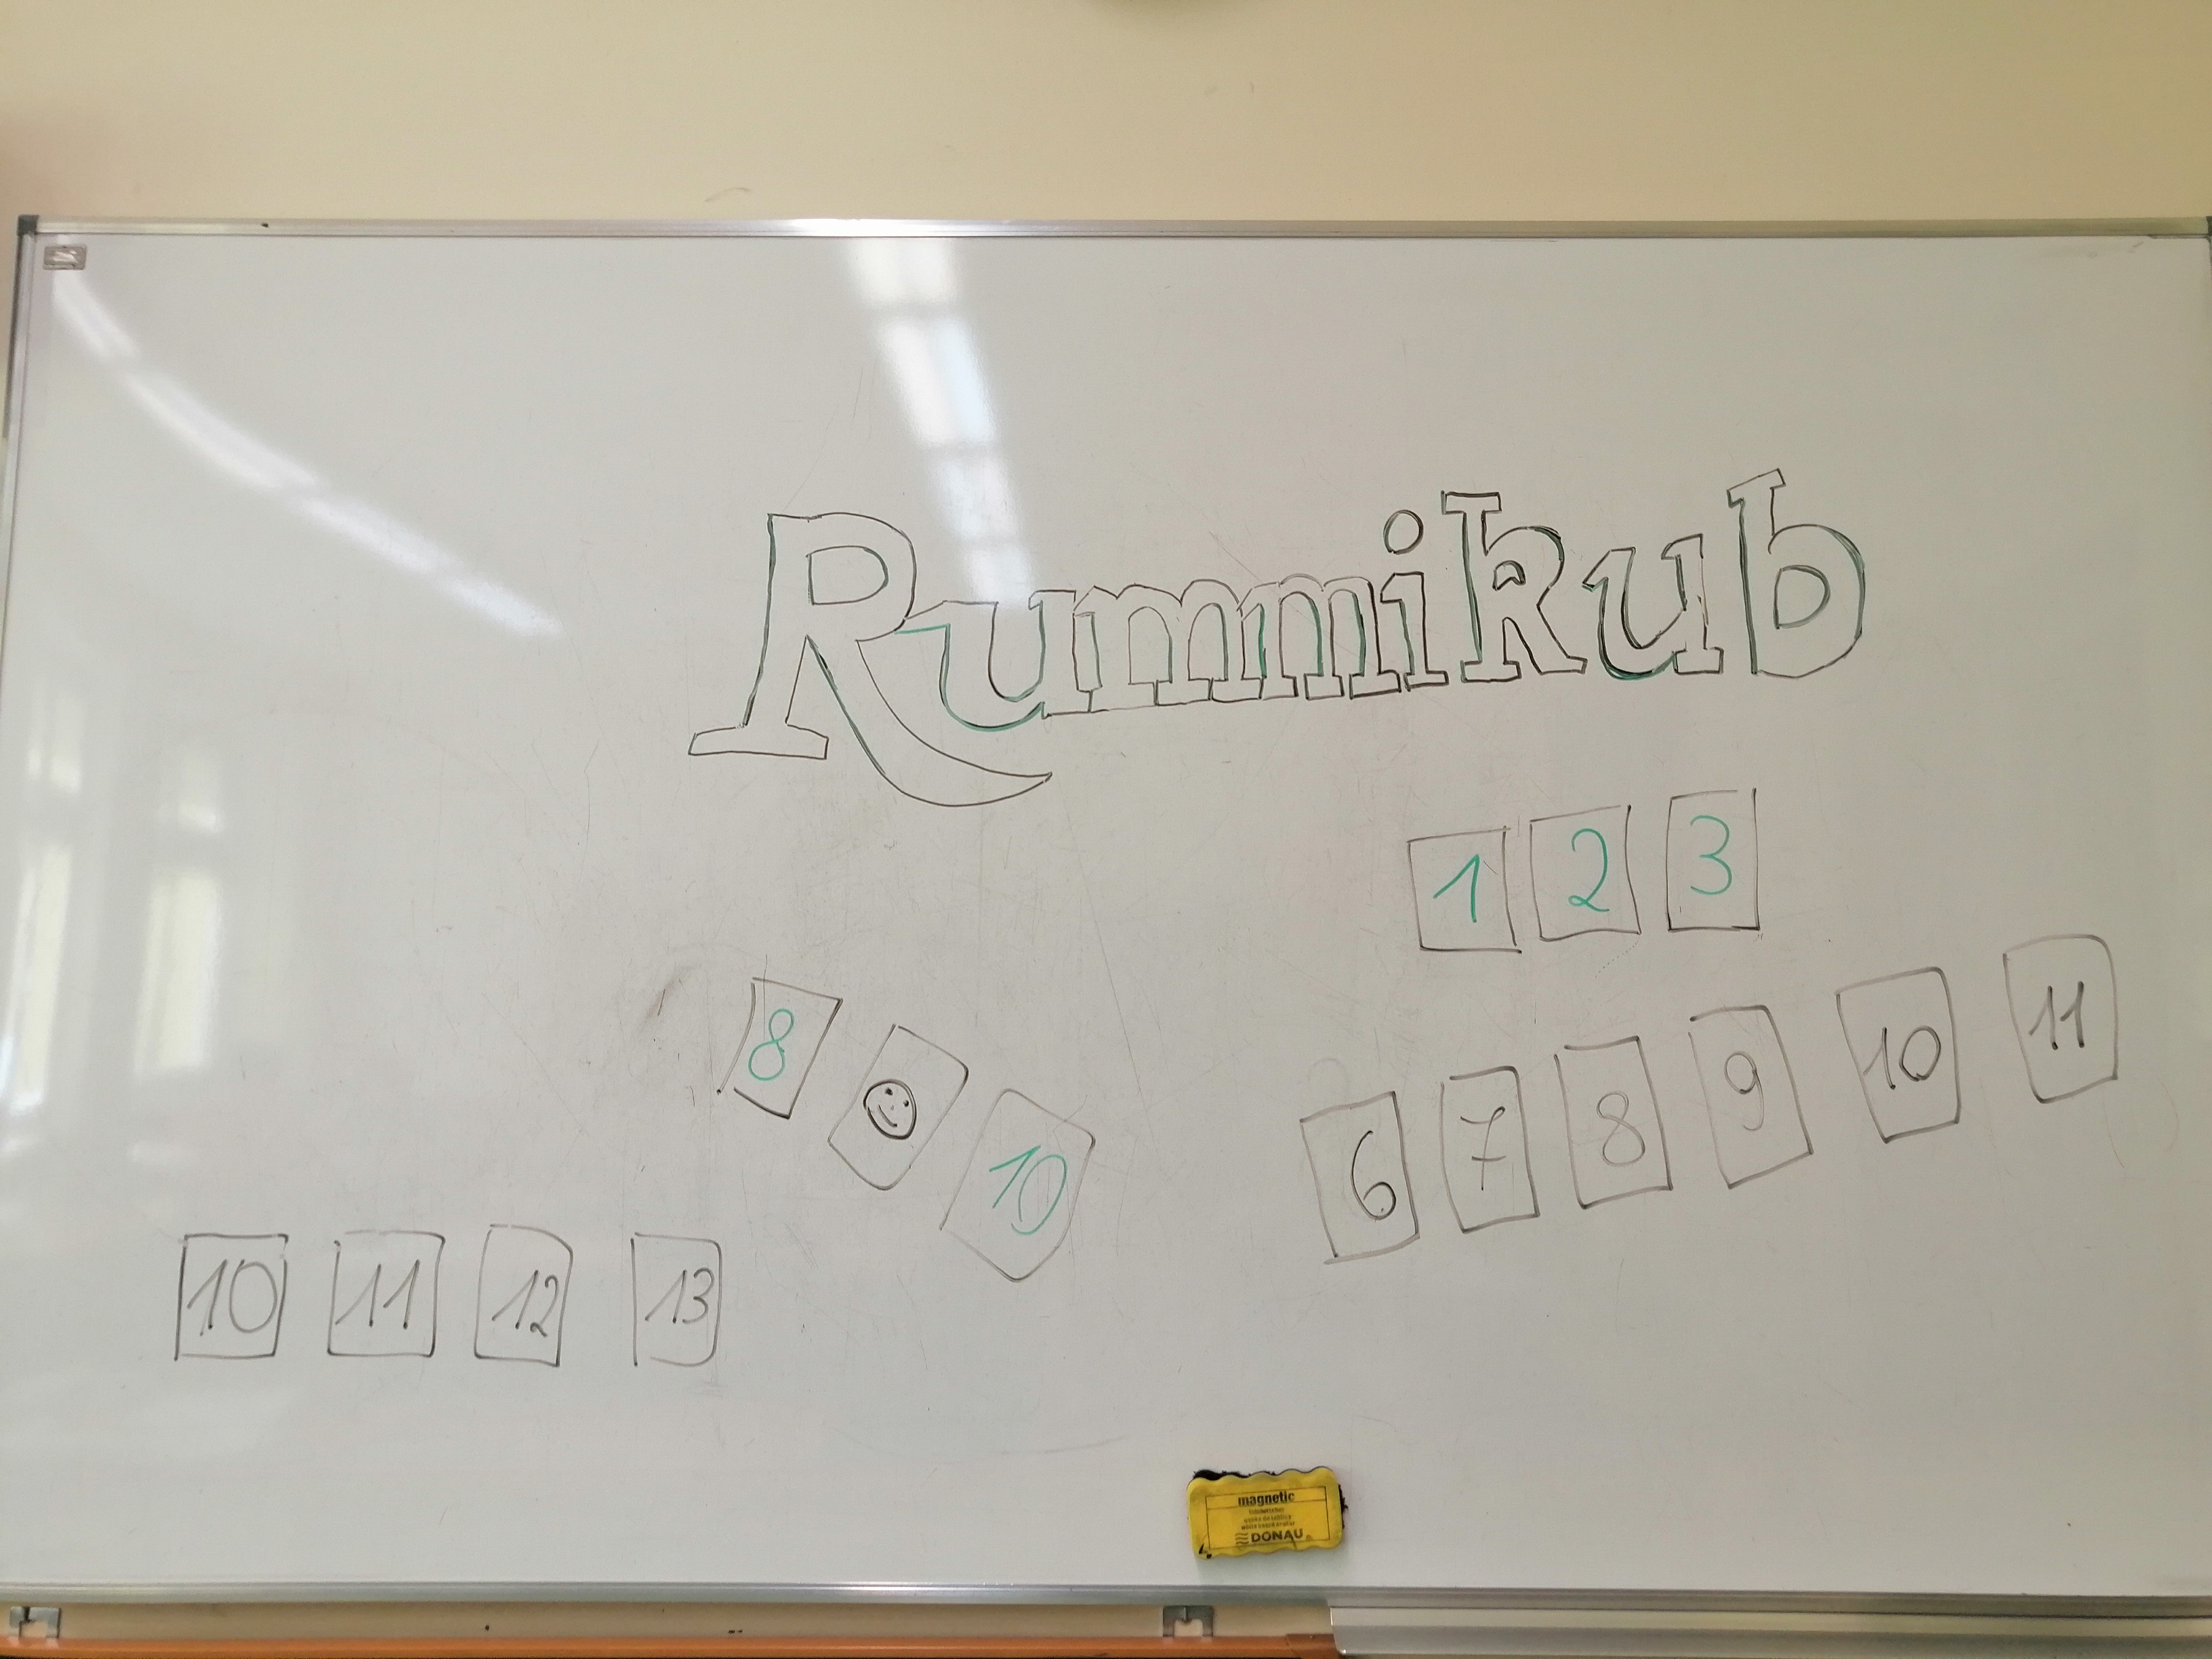 Rummikub
1 2 3
8 10
6 7 8 9 10 11
10 11 12 13
magnetic
DONAU